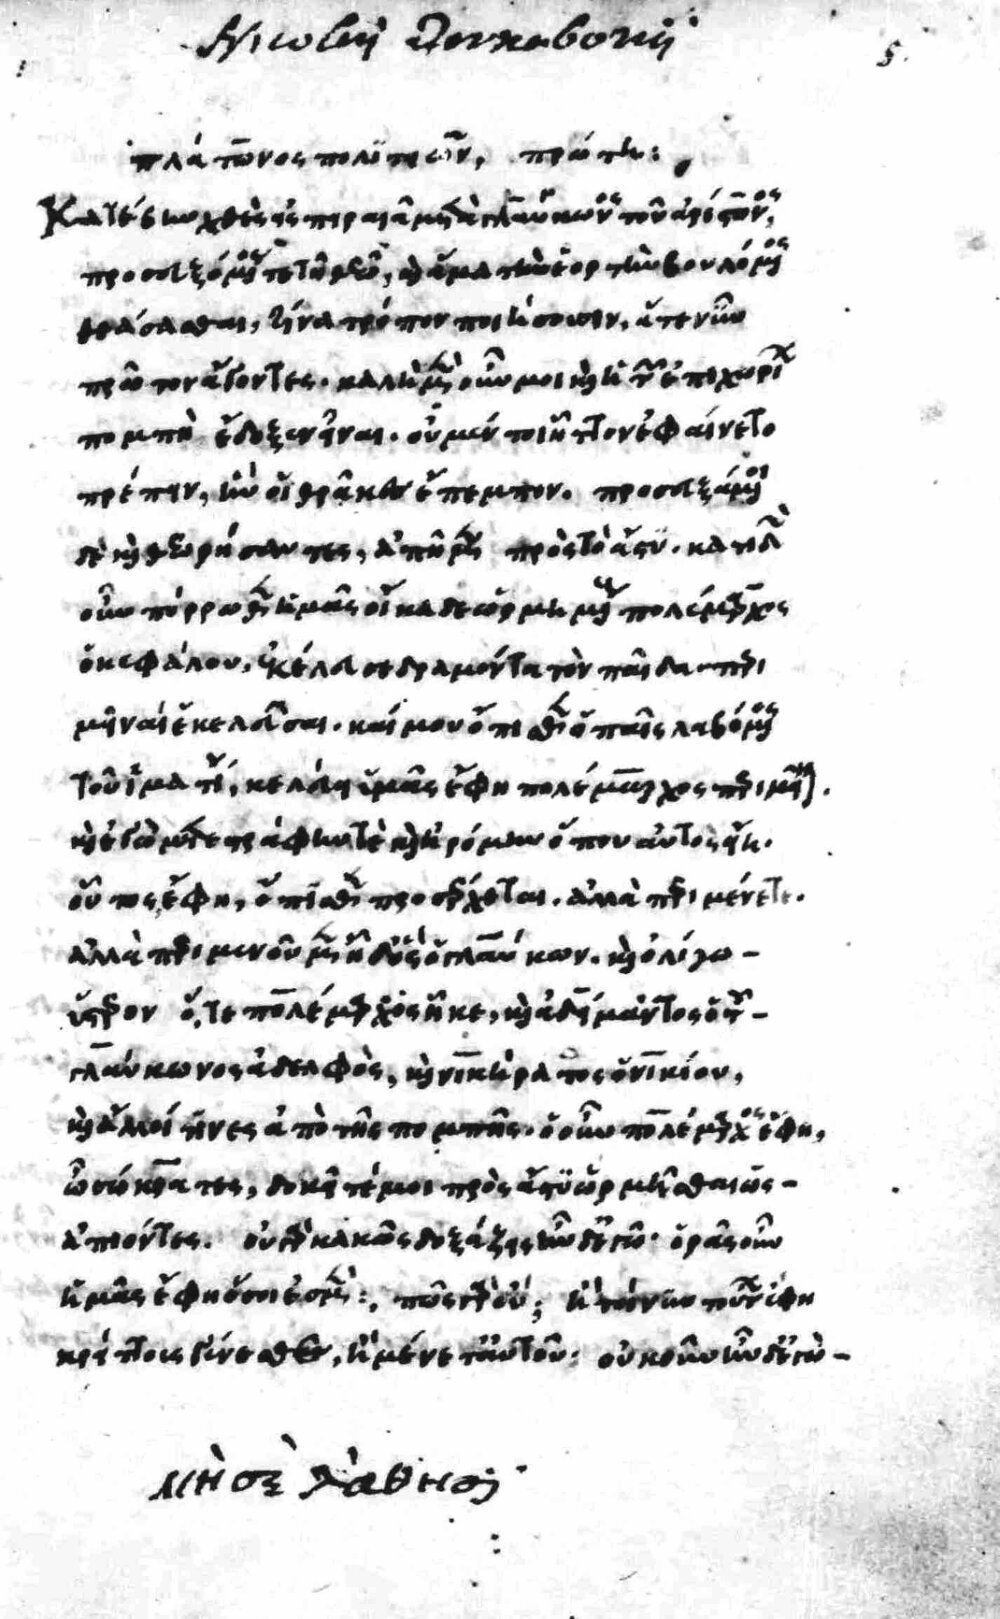 πλάτωνος πολιτειῶν, πρώτη:
Κατέβην χθὲς εἰς πειραιᾶ μετὰ γλαύκωνος τοῦ ἀρίστωνος,
προσευξόμενός τε τῇ θεῷ, καὶ ἅμα τὴν ἑορτὴν βουλόμενος
θεάσασθαι, τίνα τρόπον ποιήσουσιν, ἅτε νῦν
πρῶτον ἄγοντες. καλὴ μὲν οὖν μοι καὶ ἡ τῶν ἐπιχωρίων
πομπὴ ἔδοξεν εἶναι. οὐ μέντοι ἧττον ἐφαίνετο
πρέπειν, ἣν οἱ θρᾶκες ἔπεμπον. προσευξάμενοι
δὲ καὶ θεωρήσαντες, ἀπῇμεν πρὸς τὸ ἄστυ. κατιδὼν
οὖν πόρρωθεν ἡμᾶς οἴκαδε ὡρμημένους πολέμαρχος
ὁ κεφάλου, ἐκέλευσε δραμόντα τὸν παῖδα περι
μεῖναί ἑ κελεῦσαι. καί μου ὄπισθεν ὁ παῖς λαβόμενος
τοῦ ἱματίου, κελεύει ὑμᾶς ἔφη πολέμαρχος περιμεῖναι.
καὶ ἐγὼ μετεστράφην τὲ καὶ ἠρόμην ὅπου αὐτὸς εἴη.
οὗτος ἔφη, ὄπισθεν προσέρχεται. ἀλλὰ περιμένετε.
ἀλλὰ περιμενοῦμεν ἦ δ' ὃς ὁ γλαύκων. καὶ ὀλίγω-
ὕστερον ὅ,τε πολέμαρχος ἧκε, καὶ ἀδείμαντος ὁ τοῦ-
γλαύκωνος ἀδελφὸς, καὶ νικήρατος ὁ νικίου,
καὶ ἄλλοί τινες ἀπὸ τῆς πομπῆς. ὁ οὖν πολέμαρχος ἔφη,
ὦ σώκρατες, δοκεῖτέ μοι πρὸς ἄστυ ὡρμῆσθαι ὡς-
ἀπιόντες. οὐ γὰρ κακῶς δοξάζεις ἦν δ' ἐγώ. ὁρᾷς οὖν
ἡμᾶς ἔφη ὅσοι ἐσμέν:, πῶς γὰρ οὔ; ἢ τοίνυν τούτων ἔφη
κρείττους γένεσθε, ἢ μένετ' αὐτοῦ: οὐκοῦν ἦν δ' ἐγὼ-